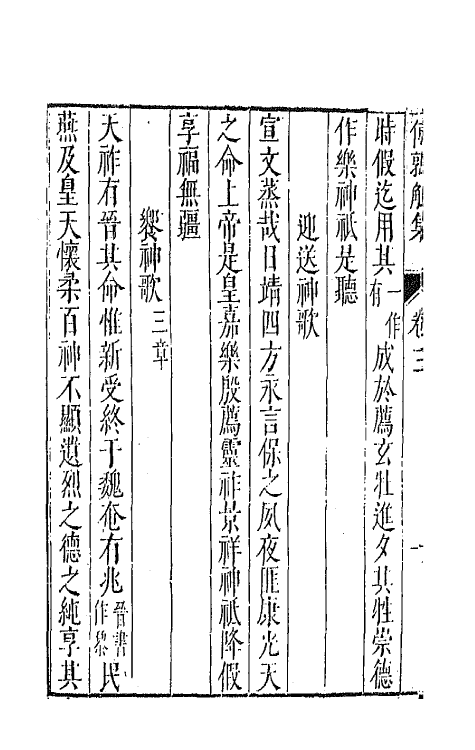 傅鶉觚集　卷三
時假迄用其一作有成於薦玄牡進夕其牲崇德
作樂神祇是聽
迎送神歌
宣文蒸哉日靖四方永言保之夙夜匪康光天
之命上帝是皇嘉樂殷薦靈祚景祥神祇降假
享福無疆
饗神歌三章
天祚有晉其命惟新受終于魏奄有兆晉書作黎民
燕及皇天懷柔百神不顯遺烈之德之純享其